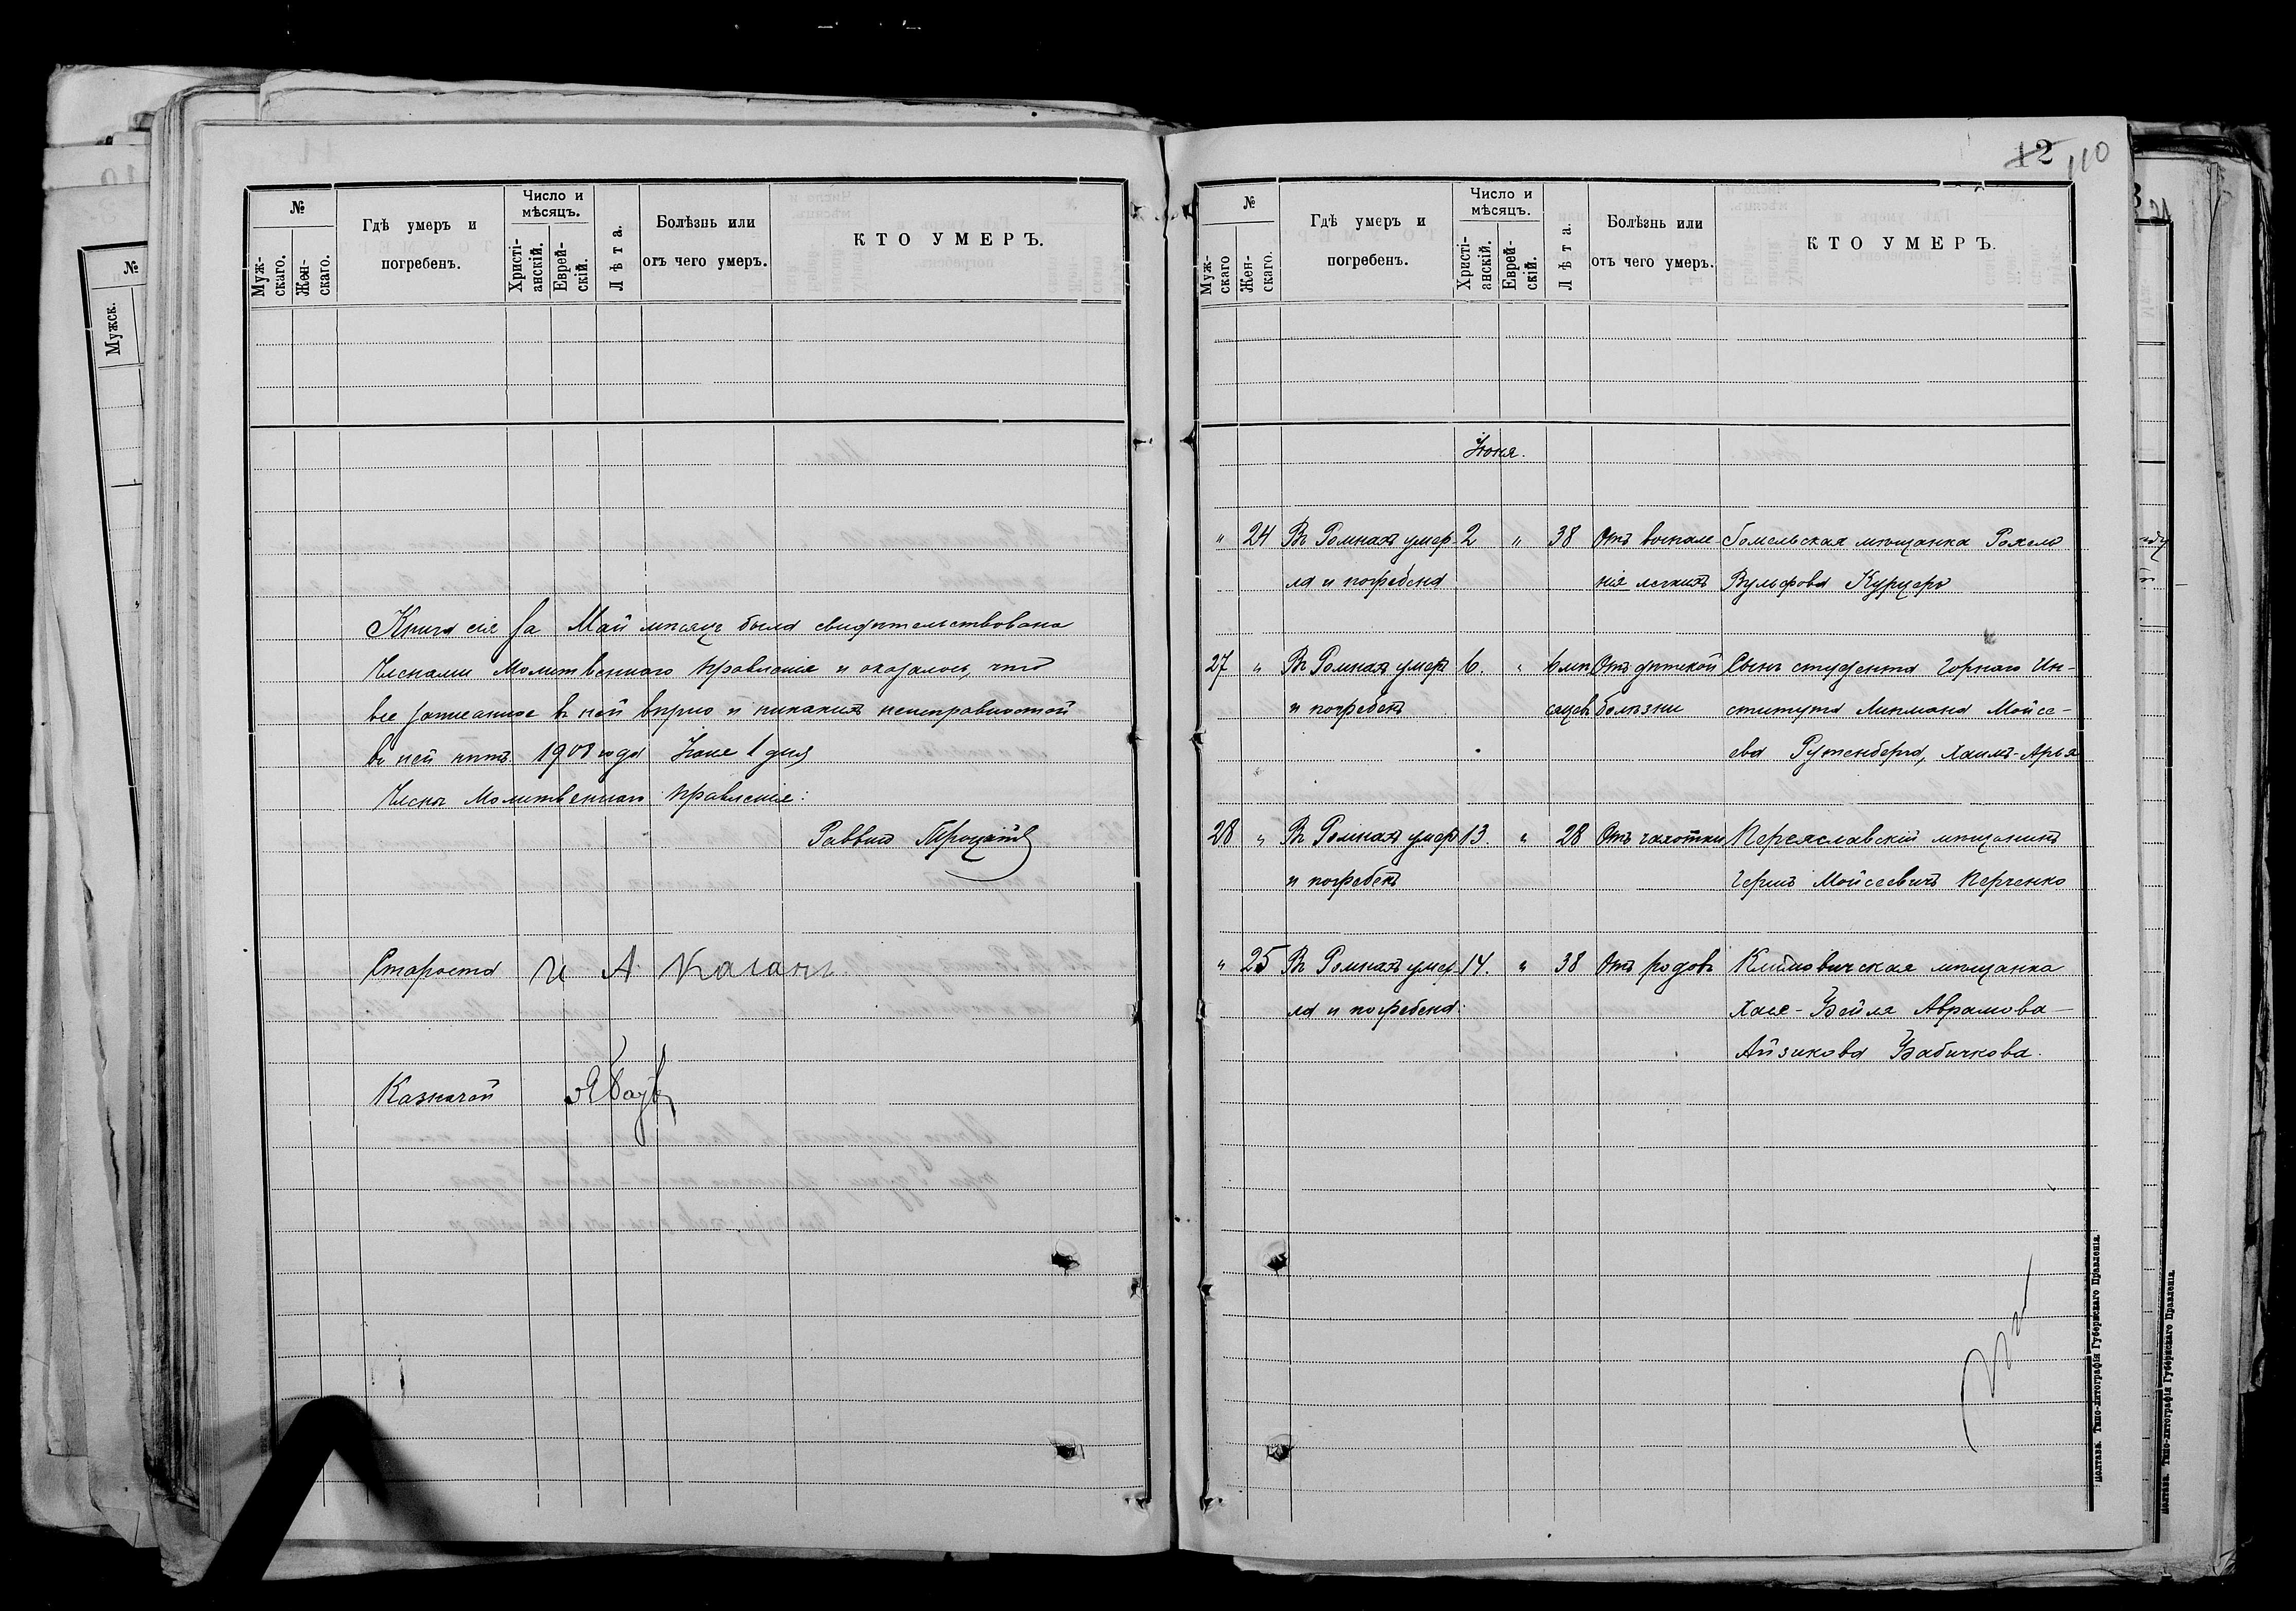 №
Муж-
скаго.
Жен-
скаго.
Гдѣ умеръ и
погребенъ.
Число и
мѣсяцъ.
Христі-
анскій.
Еврей-
скій.
Лѣта.
Болѣзнь или
отъ чего умеръ.
КТО УМЕРЪ.
Книга сія за Май мѣсяцъ была свидѣтельствована
Членами Молитвеннаго Правленія и оказалось, что
все записанное въ ней вѣрно и никакихъ неисправностей
въ ней нѣтъ. 1908 года Іюня 1 дня
Члены Молитвеннаго Правленія:
Раввинъ
Староста И А Каганъ
Казначей
№
Мужск.
12 110
№
Муж-
скаго
Жен-
скаго.
Гдѣ умеръ и
погребенъ.
Число и
мѣсяцъ.
Христі-
анскій.
Еврей-
скій.
Лѣта.
Болѣзнь или
отъ чего умеръ.
КТО УМЕРЪ.
Іюня.
" 24 Въ Ромнахъ умер- 2 " 38 Отъ воспале Гомельская мѣщанка Рохля
ла и погребена нія легкихъ Вульфова Курцеръ
27 " Въ Ромнахъ умеръ 6. " 6 мѣ Отъ дѣтской Сынъ студента Горнаго Ин-
и погребенъ сяцевъ болѣзни ститута Липмана Мойсе-
ева Рутенберга, Хаимъ-Арья
28 " Въ Ромнахъ умеръ 13. " 28 Отъ чахотки Переяславскій мѣщанинъ
и погребенъ Гершъ Мойсеевичъ Перченко
" 25 Въ Ромнахъ умер- 14. " 38 Отъ родовъ Климовичская мѣщанка
ла и погребена. Хася-Бейля Абрамова-
Айзикова Бабичкова.
Полтава. Типо-литографія Губернскаго Правленія.
Полтава. Типо-литографія Губернскаго Правленія.